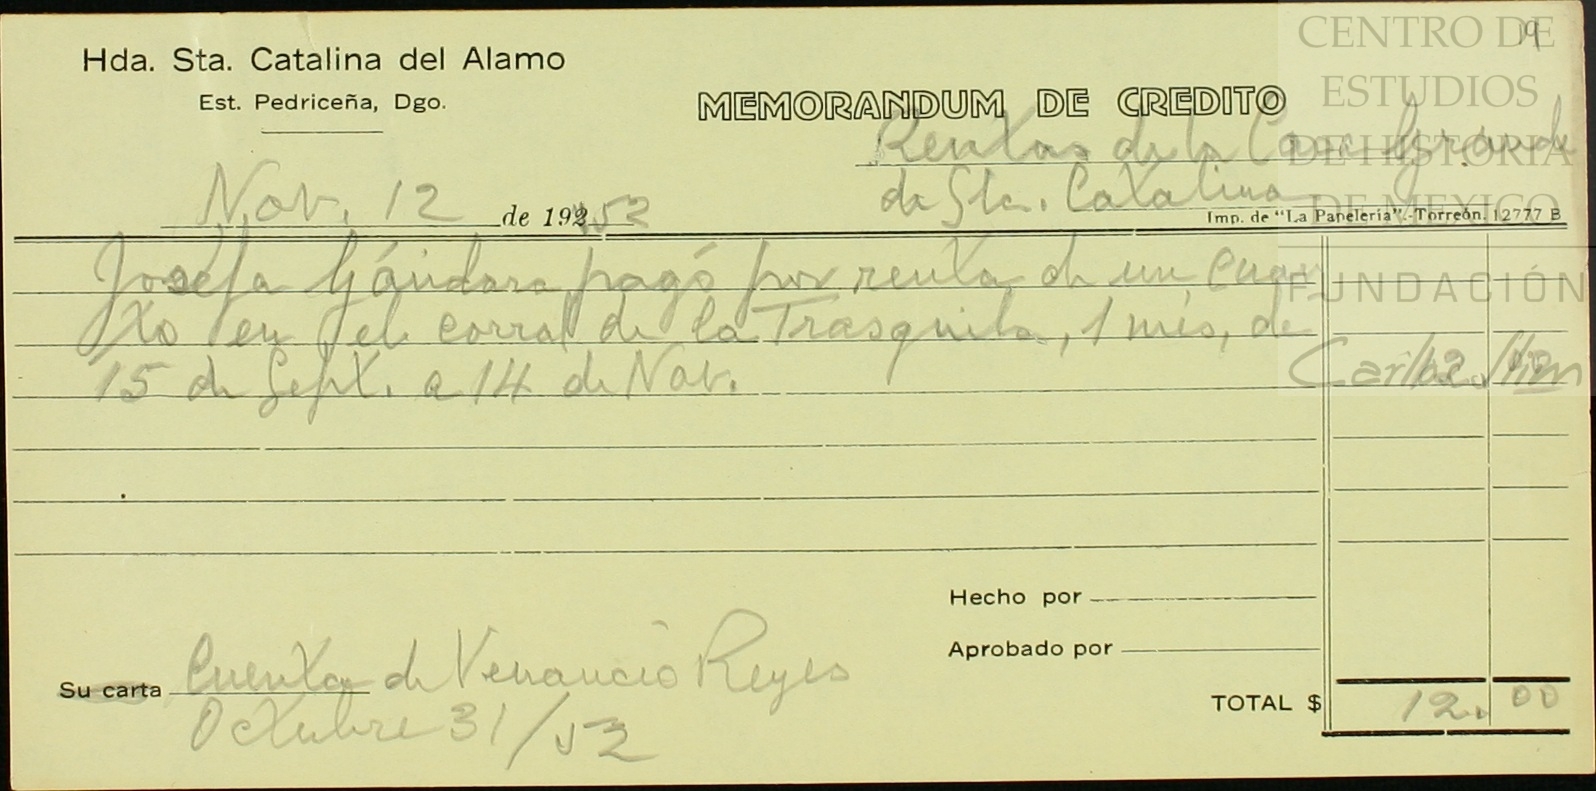 19
Hda. Sta. Catalina del Alamo
Est. Pedriceña, Dgo.
MEMORANDUM DE CREDITO
Rentas de la Casa Grande
de Sta. Catalina
Nov. 12 de 192 52
Imp. de "La Papelería".-Torreón. 12777 B
Josefa Gándara pagó por renta de un cuar
to en el corral de la Trasquila, 1 mes, de
15 de Sept. a 14 de Nov. 12.00
Hecho por
Aprobado por
Su carta Cuenta de Venancio Reyes
Octubre 31/52
TOTAL $ 12.00
CENTRO DE
ESTUDIOS
DE HISTORIA
DE MEXICO
FUNDACIÓN
Carlos Slim